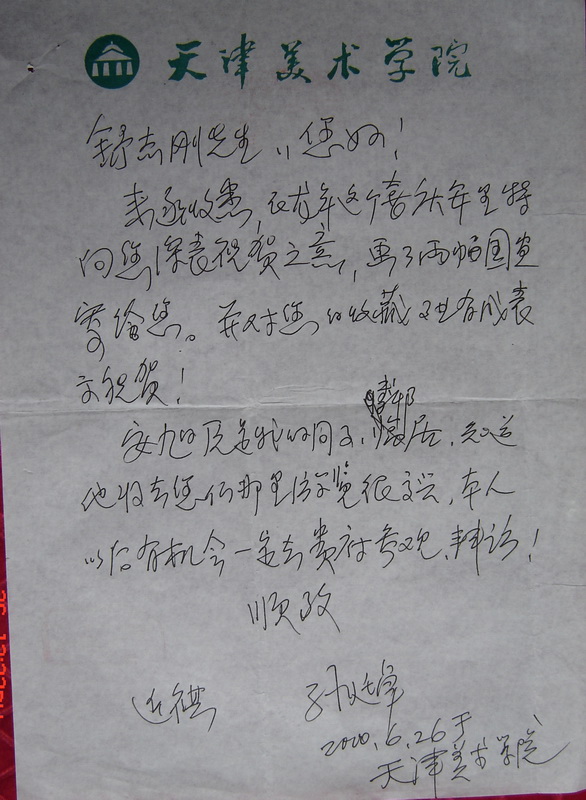 天津美术学院
舒志刚先生，您好！
来函收悉，在龙年这个喜秋年里特
向您深表祝贺之意，画了两幅国画
寄给您。并对您的收藏又有成表
示祝贺！
安旭及是我的同事、邻居，知道
他将去您们那里游览很高兴，本人
以后有机会一定去贵府参观、拜访！
顺致
近祺
2000.6.26于
天津美术学院